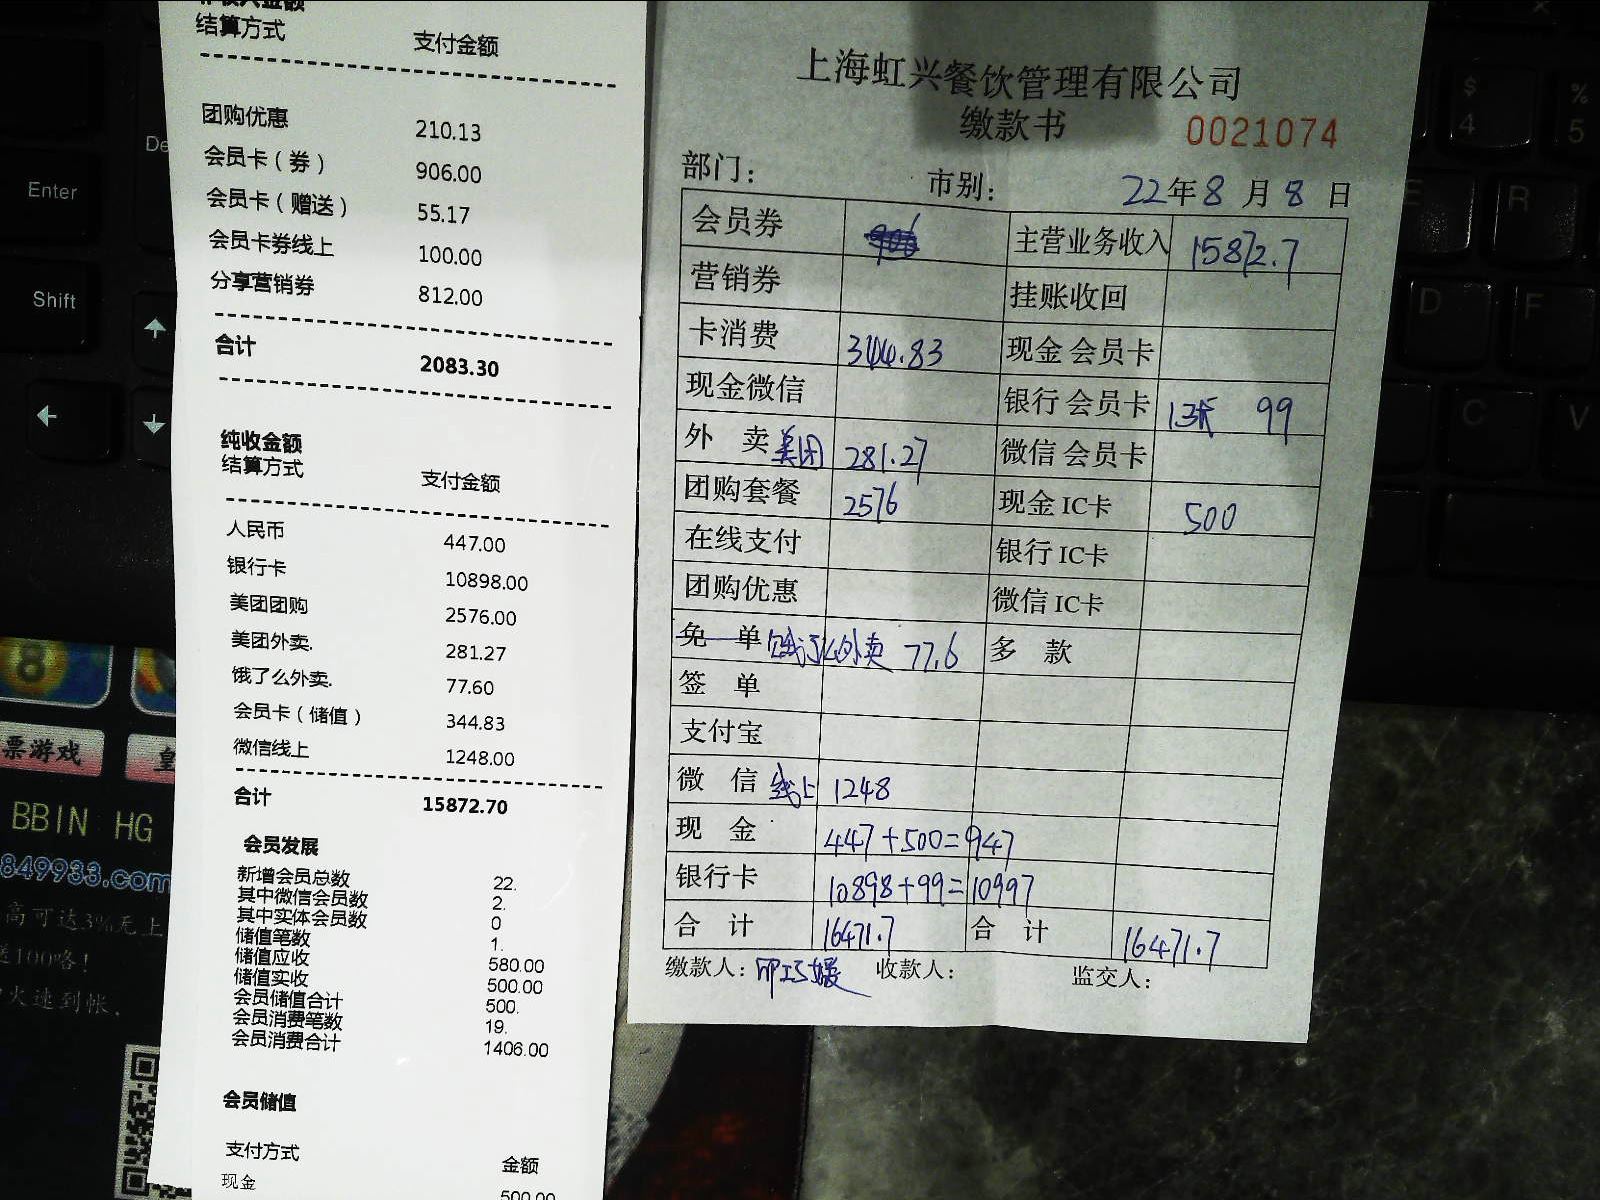 结算方式 支付金额
团购优惠 210.13
会员卡（券） 906.00
会员卡（赠送） 55.17
会员卡券线上 100.00
分享营销券 812.00
合计 2083.30
纯收金额
结算方式 支付金额
人民币 447.00
银行卡 10898.00
美团团购 2576.00
美团外卖. 281.27
饿了么外卖. 77.60
会员卡（储值） 344.83
微信线上 1248.00
合计 15872.70
会员发展
新增会员总数 22.
其中微信会员数 2.
其中实体会员数 0
储值笔数 1.
储值应收 580.00
储值实收 500.00
会员储值合计 500.
会员消费笔数 19.
会员消费合计 1406.00
会员储值
支付方式 金额
现金 500.00
上海虹兴餐饮管理有限公司
缴款书 0021074
部门： 市别： 22年8月8日
会员券 主营业务收入 15872.7
营销券 挂账收回
卡消费 344.83 现金会员卡
现金微信 银行会员卡 13张 99
外卖美团 281.27 微信会员卡
团购套餐 2576 现金IC卡 500
在线支付 银行IC卡
团购优惠 微信IC卡
免单 饿了么外卖 77.6 多款
签单
支付宝
微信线上 1248
现金 447+500=947
银行卡 10898+99=10997
合计 16471.7 合计 16471.7
缴款人： 收款人： 监交人：
Enter
Shift
$
4
%
5
R
D
F
C
V
8
票游戏
BBIN HG
849933.com
高可达3%无上
送100咯！
火速到帐.